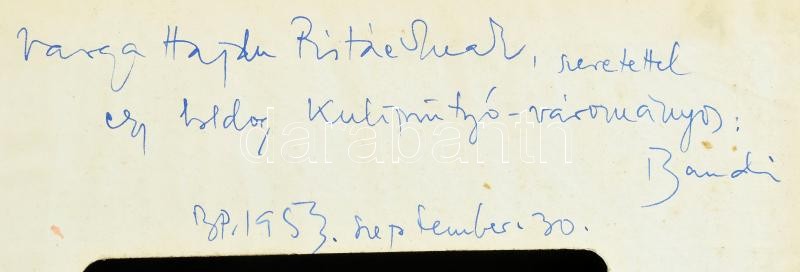 Varga Hajdu Pistáéknak, szeretettel
egy boldog Kulipintyó-várományos:
Bandi
BP. 1953. szeptember. 30.
darabanth